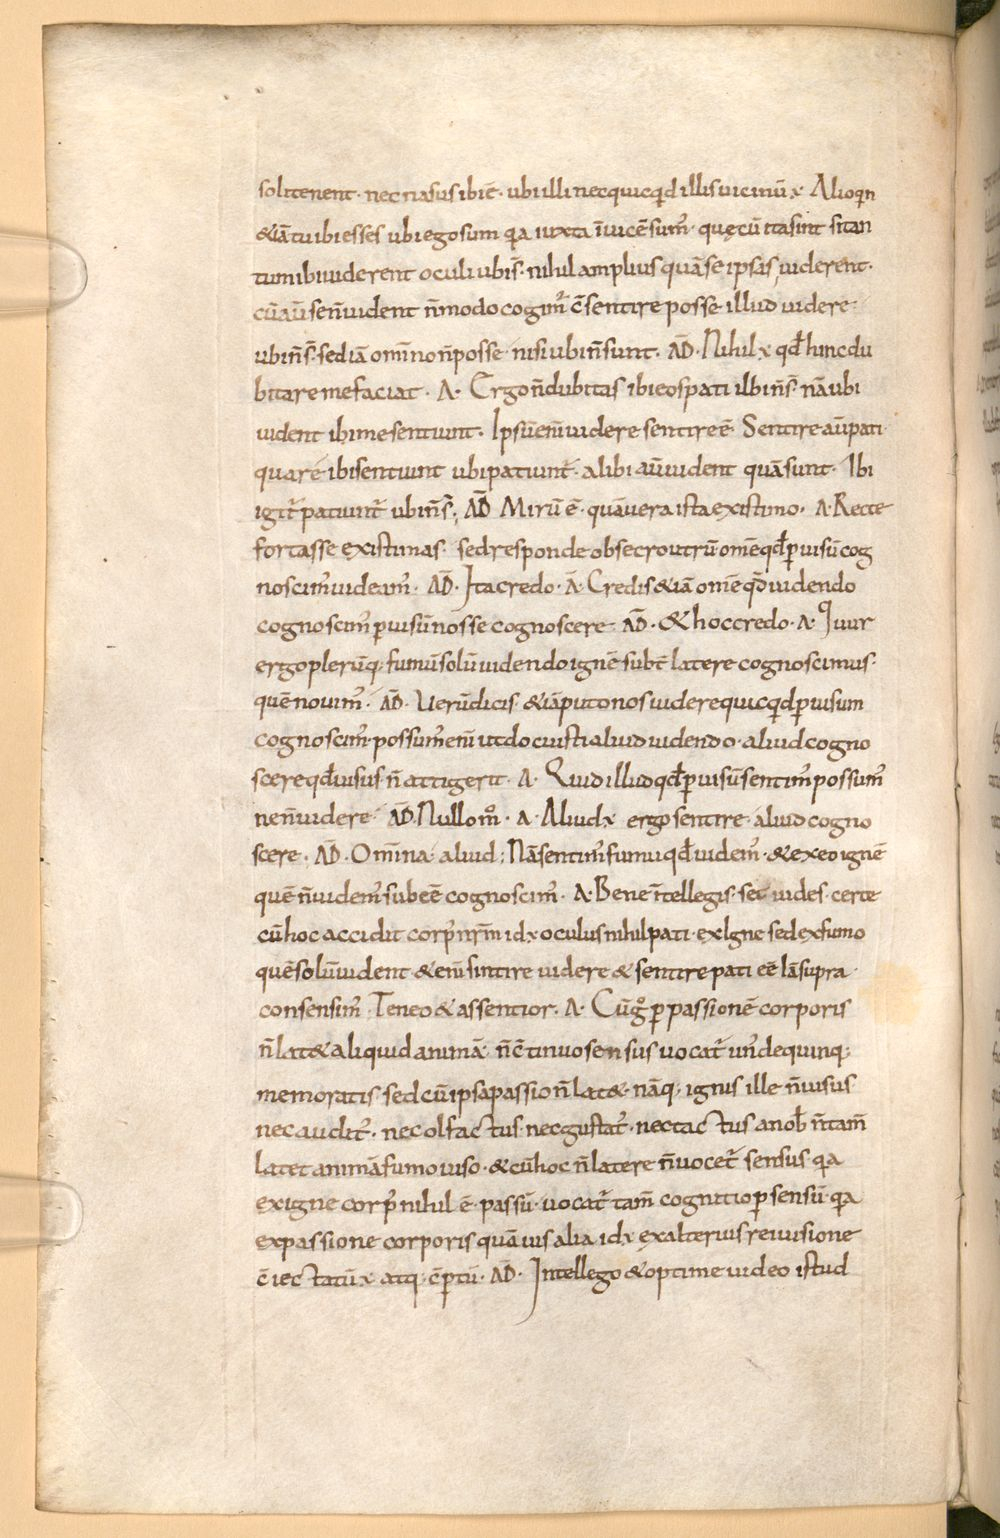 soli tenent · nec nasus ibi ē · ubi illi nec quicqd illis uicinū · Alioqn
&iā tu ibi esses ubi ego sum qa iuxta īuicē sum᷒ · quęcū ita sint si tan
tum ibi uiderent oculi ubi s̄ · nihil amplius quā se ipsas uiderent ·
cū aū se n̄ uident n̄ modo cogim᷒ c̄sentire posse illud uidere
ubi n̄ s̄ · sed iā om̄ino n̄ posse nisi ubi n̄ sunt · AD̄ · Nihil x qđ hinc du
bitare me faciat · A · Ergo n̄ dubitas ibi eos pati ubi n̄ s̄ · nā ubi
uident ibi me sentiunt · Ipsū eni᷒ uidere sentire ē Sentire aū pati
quare ibi sentiunt ubi patiunt᷒ · alibi aū uident quā sunt · Ibi
igit᷒ patiunt᷒ ubi n̄ s̄ ; AD̄ Mirū ē · quā uera ista existimo · A · Recte
fortasse existimas · sed responde obsecro utrū om̄e qđ p uisū cog
noscim᷒ uideam᷒ · AD̄ · Ita credo · A · Credis &iā om̄e qđ uidendo
cognoscim᷒ p uisū nos se cognoscere · AD̄ · & hoc credo · A · Cur
ergo plerūq; fumū solū uidendo ignē subt̄ latere cognoscimus ·
quē nouim᷒ · AD̄ · Uerū dicis · &iā puto nos uidere quicqd p uisum
cognoscim᷒ · possum᷒ eni᷒ ut docuisti aliud uidendo · aliud cogno
scere qđ uisus n̄ attigerit · A · Quid illud qđ p uisū sentim᷒ possum᷒
ne n̄ uidere · AD̄ · Nullo m̊ · A · Aliud x ergo sentire · aliud cogno
scere · AD̄ · Om̄ina aliud ; Nā sentim᷒ fumū qđ uidem᷒ · & ex eo ignē
quē n̄ uidem᷒ subeē cognoscim᷒ · A · Bene īntellegis · set uides · certe
cū hoc accidit corp᷒ nr̄m id x oculus nihil pati · ex Igne sed ex fumo
quē solū uident & eni᷒ sintire uidere & sentire pati eē Iā supra
consensim᷒ · Teneo & assentior · A · Cū g̊ p passionē corporis
n̄ lat& aliquid animā n̄ c̄tinuo sensus uocat᷒ un᷒ de quinq;
memoratis sed cū ipsa passio n̄ lat& · nāq; ignis ille n̄ uisus
nec audit᷒ · nec olfactus · nec gustat᷒ · nec tactus a nob̄ n̄ tam̄
latet animā fumo uiso · & cū hoc n̄ latere n̄ uocet᷒ sensus · qa
ex igne corp᷒ nihil ē · passū · uocat᷒ tam̄ cognitio p sensū qa
ex passione corporis quā uis alia id x ex alterius rei uisione
c̄iectatū x atq; c̄ptū · AD̄ · Intellego & optime uideo istud